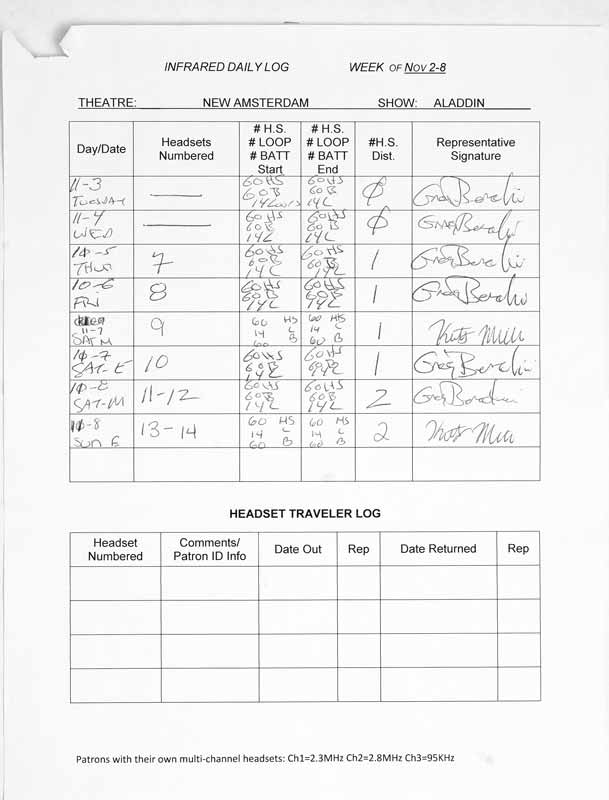 INFRARED DAILY LOG WEEK OF NOV 2-8
THEATRE: NEW AMSTERDAM SHOW: ALADDIN
Day/Date Headsets Numbered # H.S. # LOOP # BATT Start # H.S. # LOOP # BATT End #H.S. Dist. Representative Signature
11-3 TUESDAY — 60HS 60B 14Loops 60HS 60B 14L Ø
11-4 WED — 60HS 60B 14L 60HS 60B 14L Ø
10-5 THUR 7 60HS 60B 14L 60HS 60B 14L 1
10-6 FRI 8 60HS 60B 14L 60HS 60B 14L 1
11-7 SAT M 9 60 HS 14 L 60 B 60 HS 14 L 60 B 1
10-7 SAT-E 10 60HS 60B 14L 60HS 60B 14L 1
10-8 SAT-M 11-12 60HS 60B 14L 60HS 60B 14L 2
10-8 SUN E 13-14 60 HS 14 L 60 B 60 HS 14 L 60 B 2
HEADSET TRAVELER LOG
Headset Numbered Comments/ Patron ID Info Date Out Rep Date Returned Rep
Patrons with their own multi-channel headsets: Ch1=2.3MHz Ch2=2.8MHz Ch3=95KHz